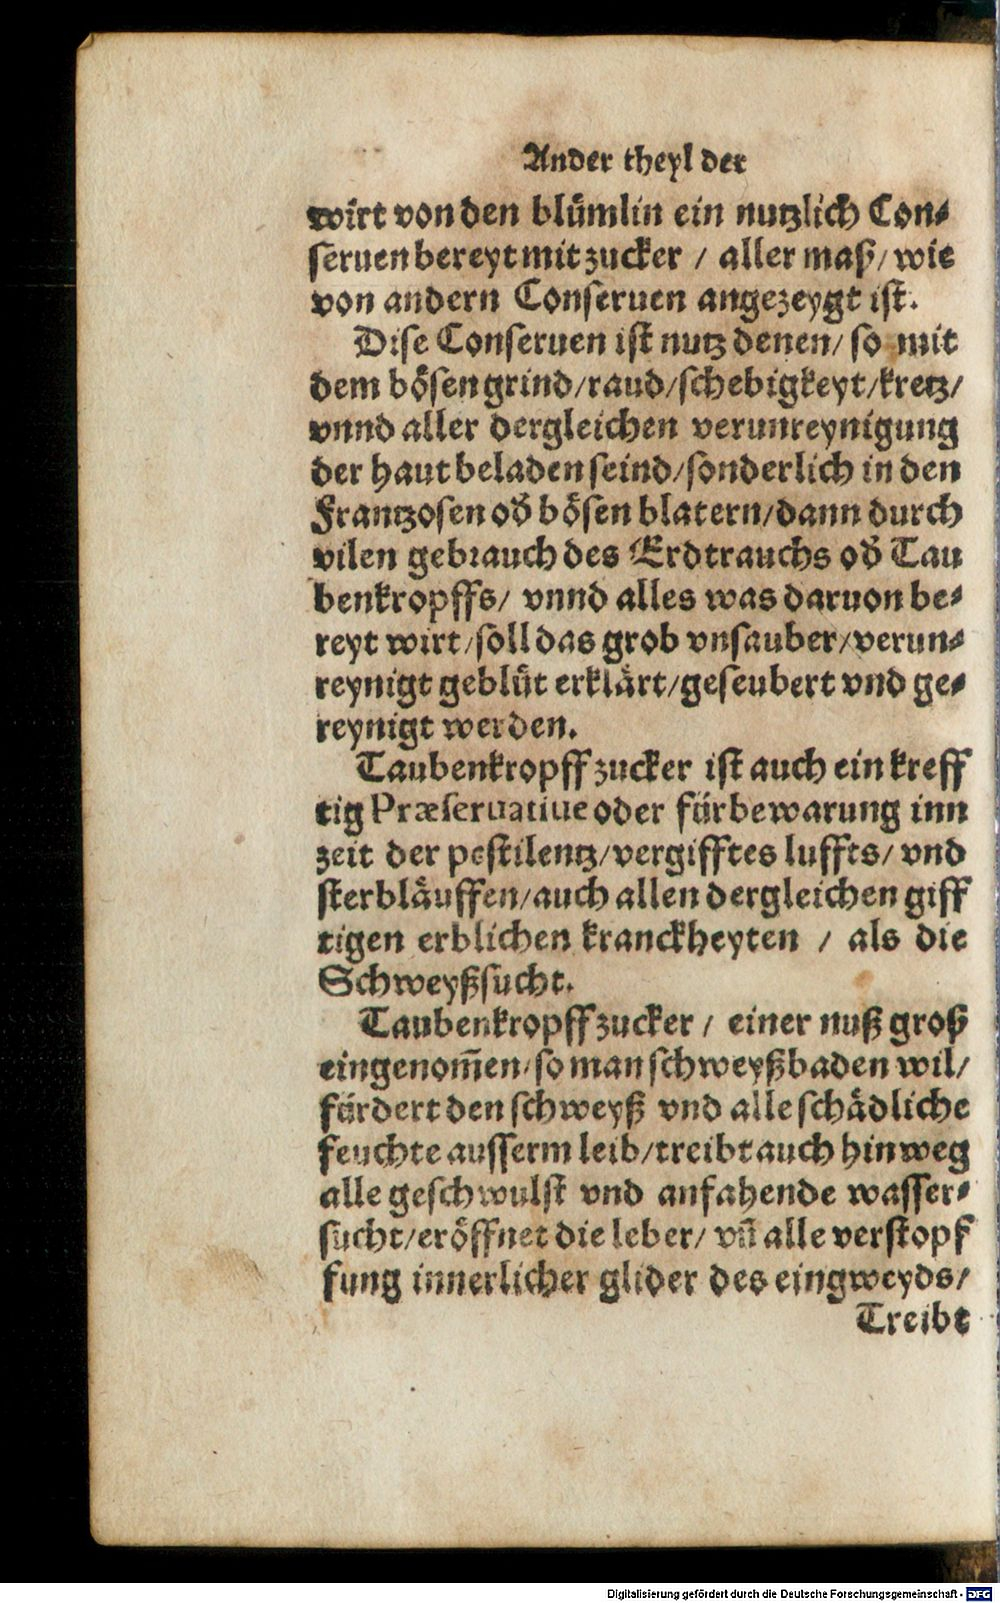 Ander theyl der
wirt von den blümlin ein nutzlich Con⸗
seruen bereyt mit zucker / aller maß / wie
von andern Conseruen angezeygt ist.
Dise Conseruen ist nutz denen / so mit
dem bösen grind / raud / schebigkeyt / kretz /
vnnd aller dergleichen verunreynigung
der haut beladen seind / sonderlich in den
Frantzosen oď bösen blatern / dann durch
vilen gebrauch des Erdtrauchs oď Tau
benkropffs / vnnd alles was daruon be⸗
reyt wirt / soll das grob vnsauber / verun⸗
reynigt geblüt erklärt / geseubert vnd ge⸗
reynigt werden.
Taubenkropff zucker ist auch ein kreff
tig Præseruatiue oder fürbewarung inn
zeit der pestilentz / vergifftes luffts / vnd
sterbläuffen / auch allen dergleichen giff
tigen erblichen kranckheyten / als die
Schweyßsucht.
Taubenkropff zucker / einer nuß groß
eingenom̄en / so man schweyßbaden wil /
fürdert den schweyß vnd alle schädliche
feuchte ausserm leib / treibt auch hinweg
alle geschwulst vnd anfahende wasser⸗
sucht / eröffnet die leber / vn̄ alle verstopf
fung innerlicher glider des eingweyds /
Treibt
Digitalisierung gefördert durch die Deutsche Forschungsgemeinschaft - DFG